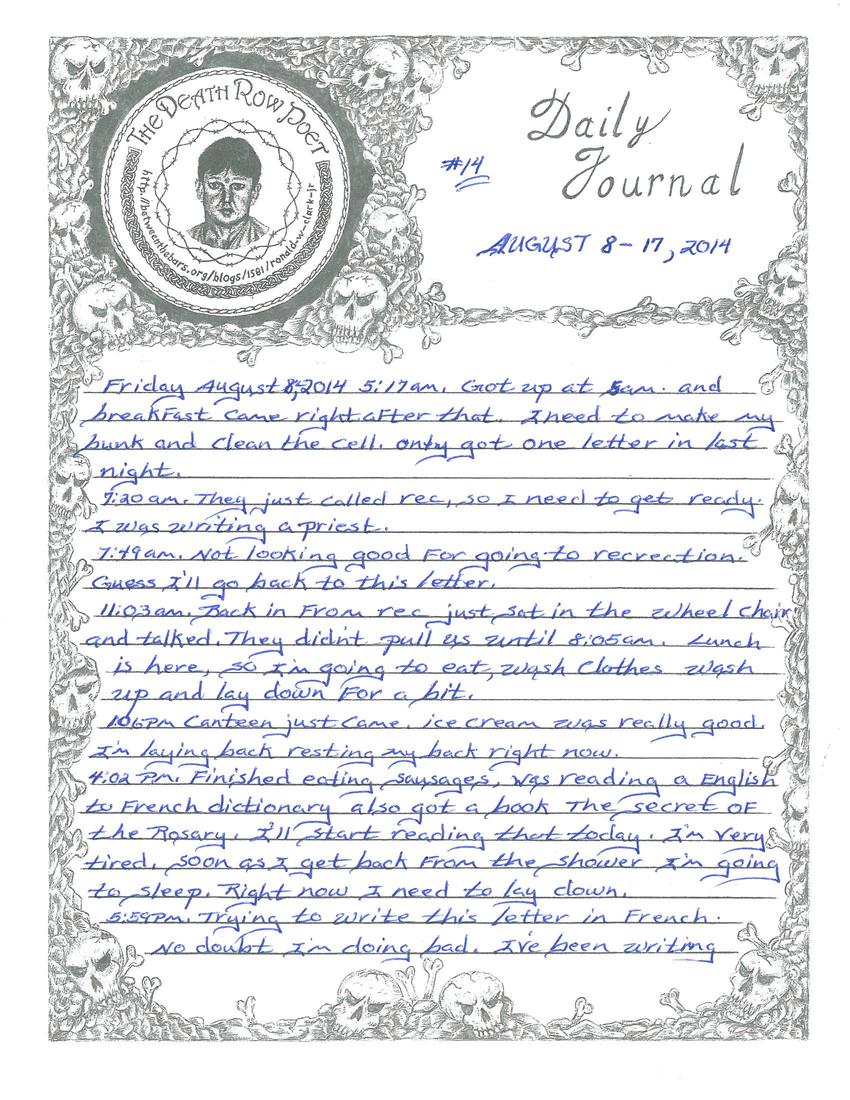 THE DEATH ROW POET
http://betweenthebars.org/blogs/1581/ronald-w-clark-jr
Daily
Journal
#14
AUGUST 8-17, 2014
Friday August 8, 2014 5:17am. Got up at 5am. and
breakfast came right after that. I need to make my
bunk and clean the cell. only got one letter in last
night.
7:20am. They just called rec, so I need to get ready.
I was writing a priest.
7:49am. Not looking good for going to recrection.
Guess I'll go back to this letter.
11:03am. Back in from rec just sat in the wheel chair
and talked. They didn't pull us until 8:05am. Lunch
is here, so I'm going to eat, wash clothes wash
up and lay down for a bit.
1:06PM Canteen just came. ice cream was really good.
I'm laying back resting my back right now.
4:02 PM. Finished eating sausages, was reading a English
to French dictionary also got a book The secret of
the Rosary. I'll start reading that today. I'm very
tired, soon as I get back from the shower I'm going
to sleep. Right now I need to lay down.
5:59PM. Trying to write this letter in French.
No doubt I'm doing bad. I've been writing